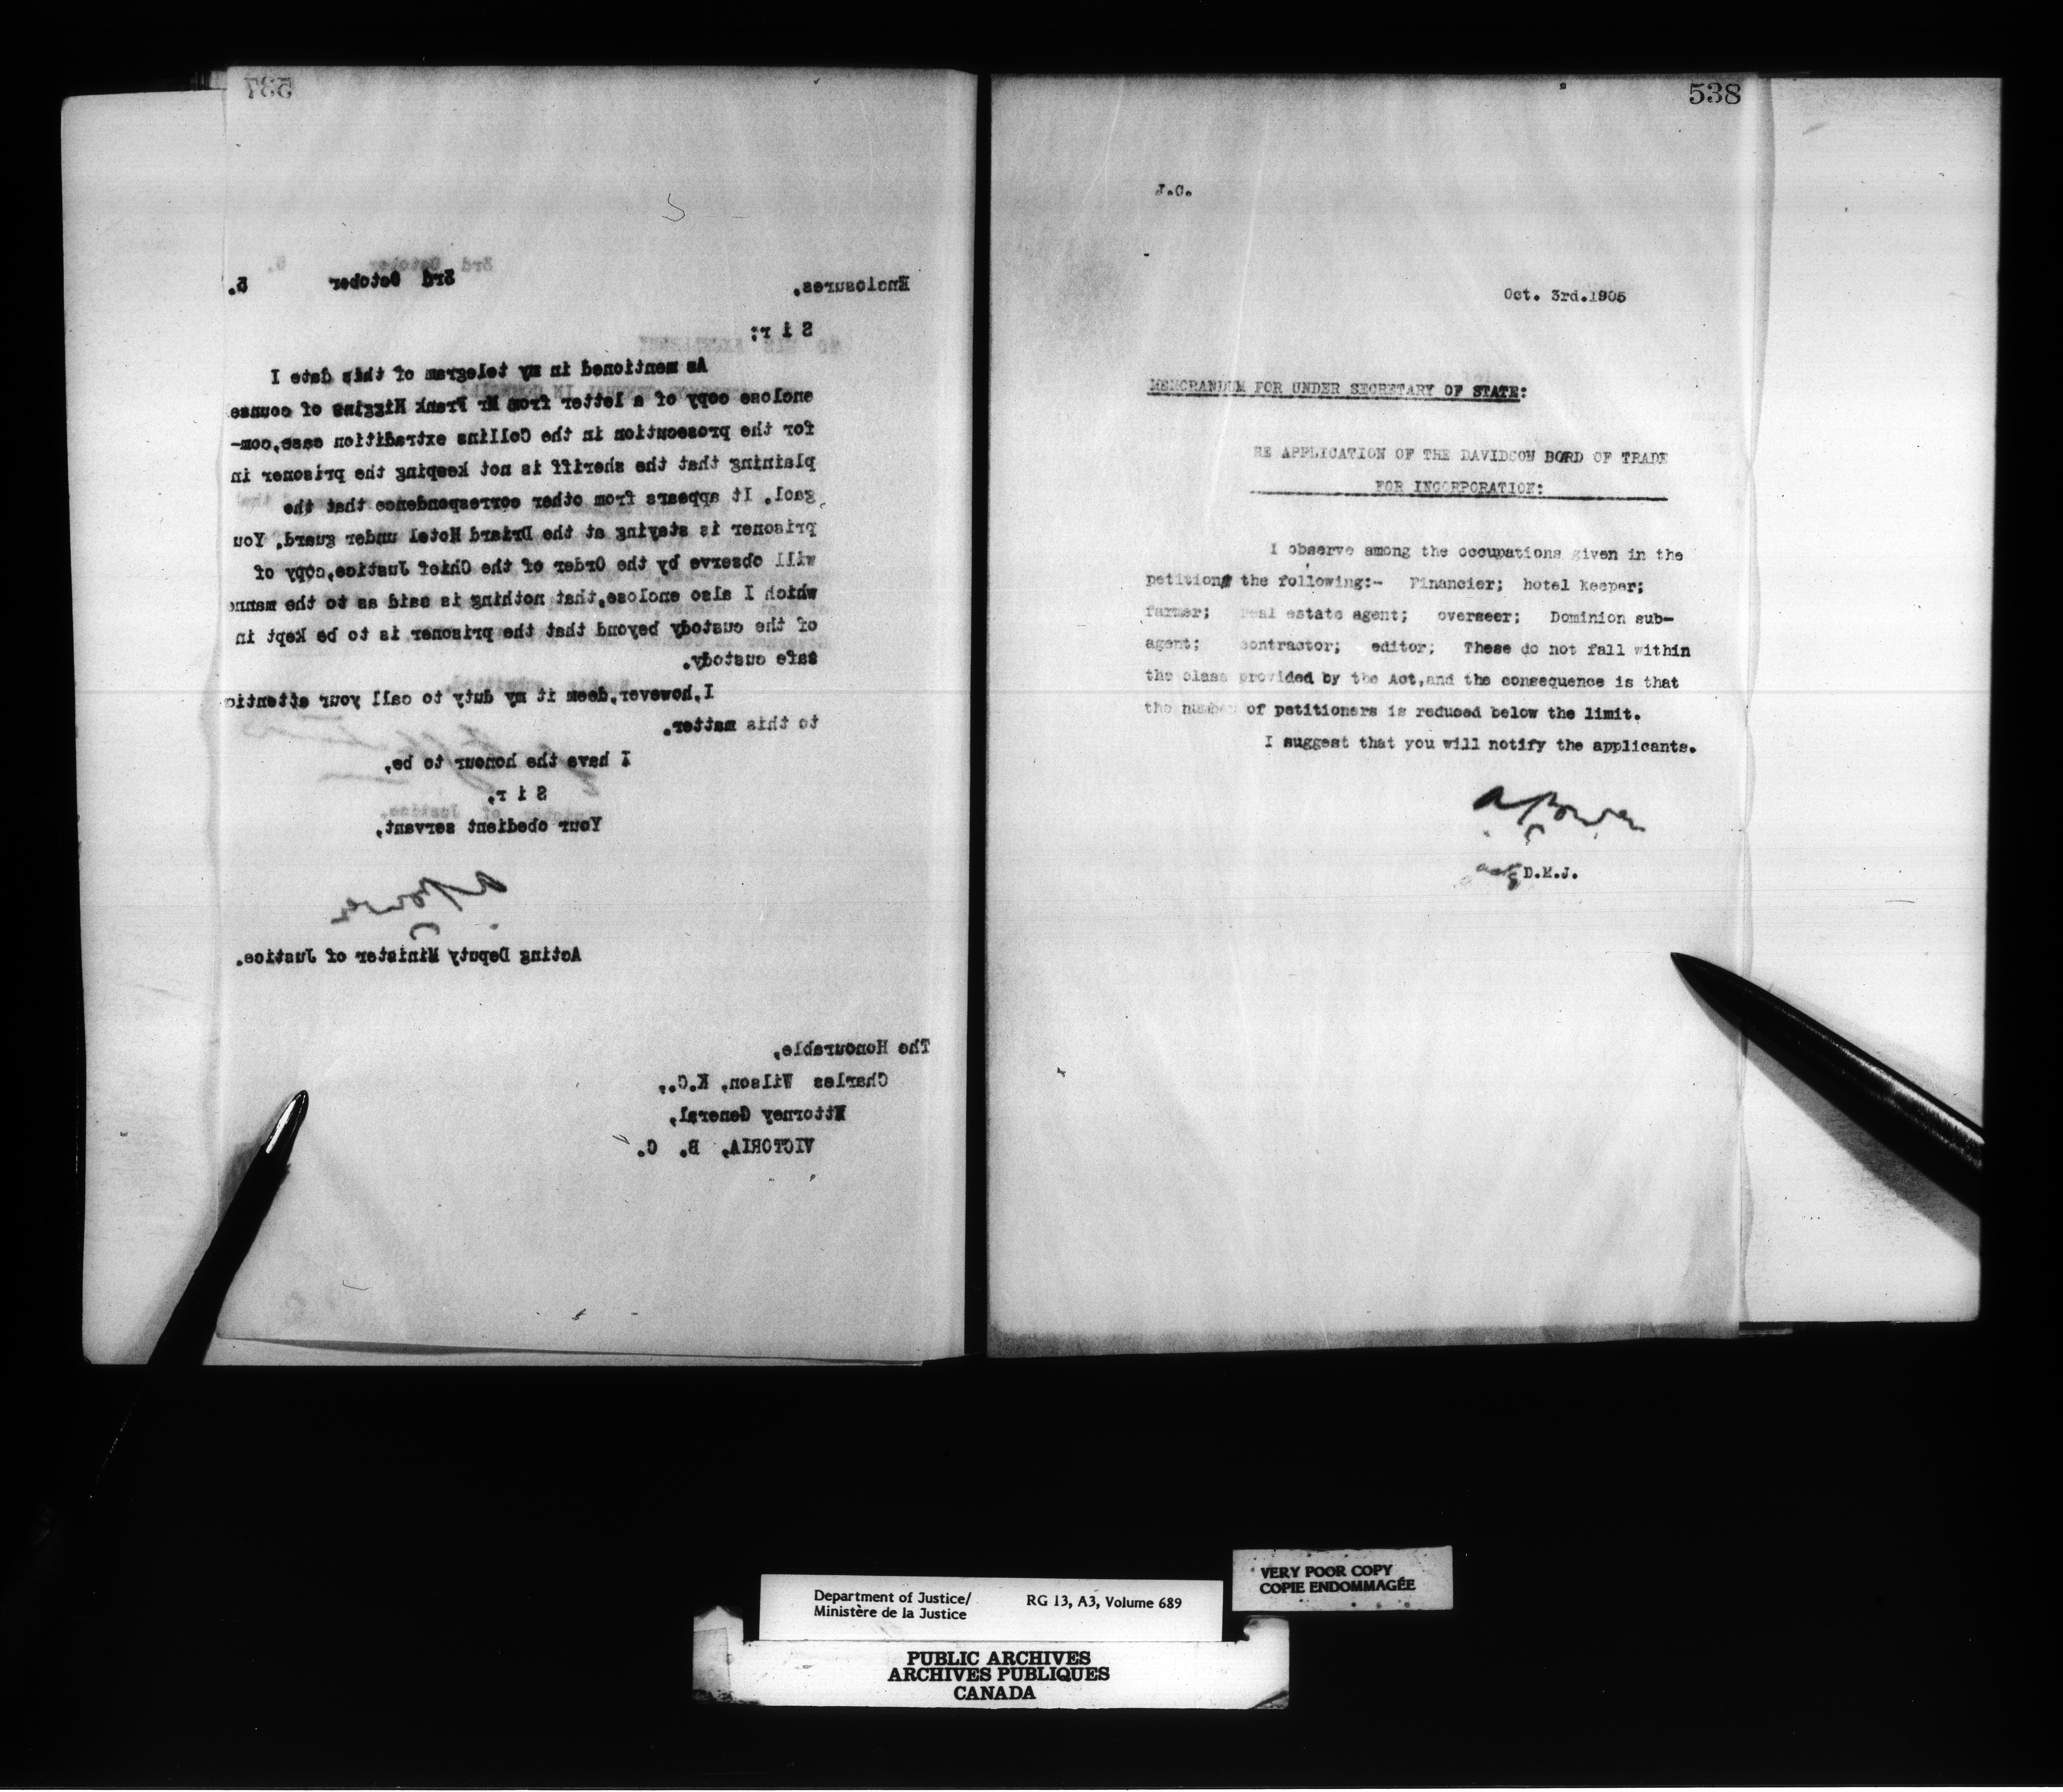 537
3rd October 5.
Enclosures.
3rd October 5.
S i r:
TO HIS EXCELLENCY
As mentioned in my telegram of this date I
enclose copy of a letter from Mr Frank Higgins of counse
for the prosecution in the Collins extradition case, com-
plaining that the sheriff is not keeping the prisoner in
gaol. It appears from other correspondence that the
prisoner is staying at the Driard Hotel under guard. You
will observe by the Order of the Chief Justice, copy of
which I also enclose, that nothing is said as to the manne
of the custody beyond that the prisoner is to be kept in
safe custody.
I, however, deem it my duty to call your attentio
to this matter.
I have the honour to be,
S i r,
Your obedient servant,
A Power
Acting Deputy Minister of Justice.
The Honourable,
Charles Wilson, K.C.,
Attorney General,
VICTORIA, B. C.
538
J.C.
Oct. 3rd.1905
MEMORANDUM FOR UNDER SECRETARY OF STATE:
RE APPLICATION OF THE DAVIDSON BORD OF TRADE
FOR INCORPORATION:
I observe among the occupations given in the
petition the following:- Financier; hotel keeper;
farmer; real estate agent; overseer; Dominion sub-
agent; contractor; editor; These do not fall within
the class provided by the Act,and the consequence is that
the number of petitioners is reduced below the limit.
I suggest that you will notify the applicants.
A Power
actg D.M.J.
VERY POOR COPY
COPIE ENDOMMAGÉE
Department of Justice/ RG 13, A3, Volume 689
Ministère de la Justice
PUBLIC ARCHIVES
ARCHIVES PUBLIQUES
CANADA